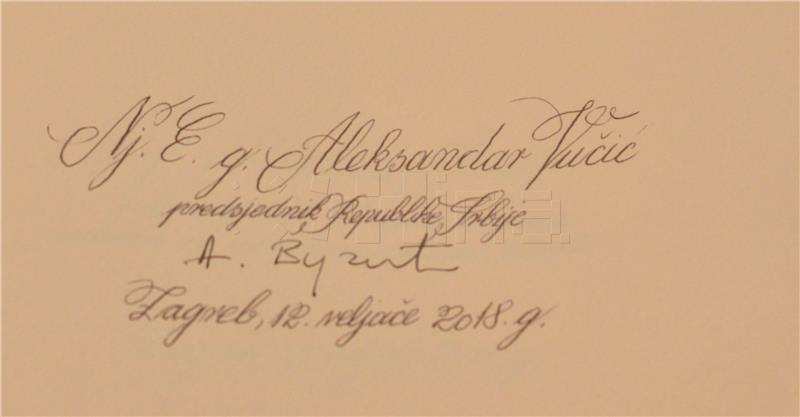 Nj. E. g. Aleksandar Vučić
predsjednik Republike Srbije
А. Вучић
Zagreb, 12. veljače 2018. g.